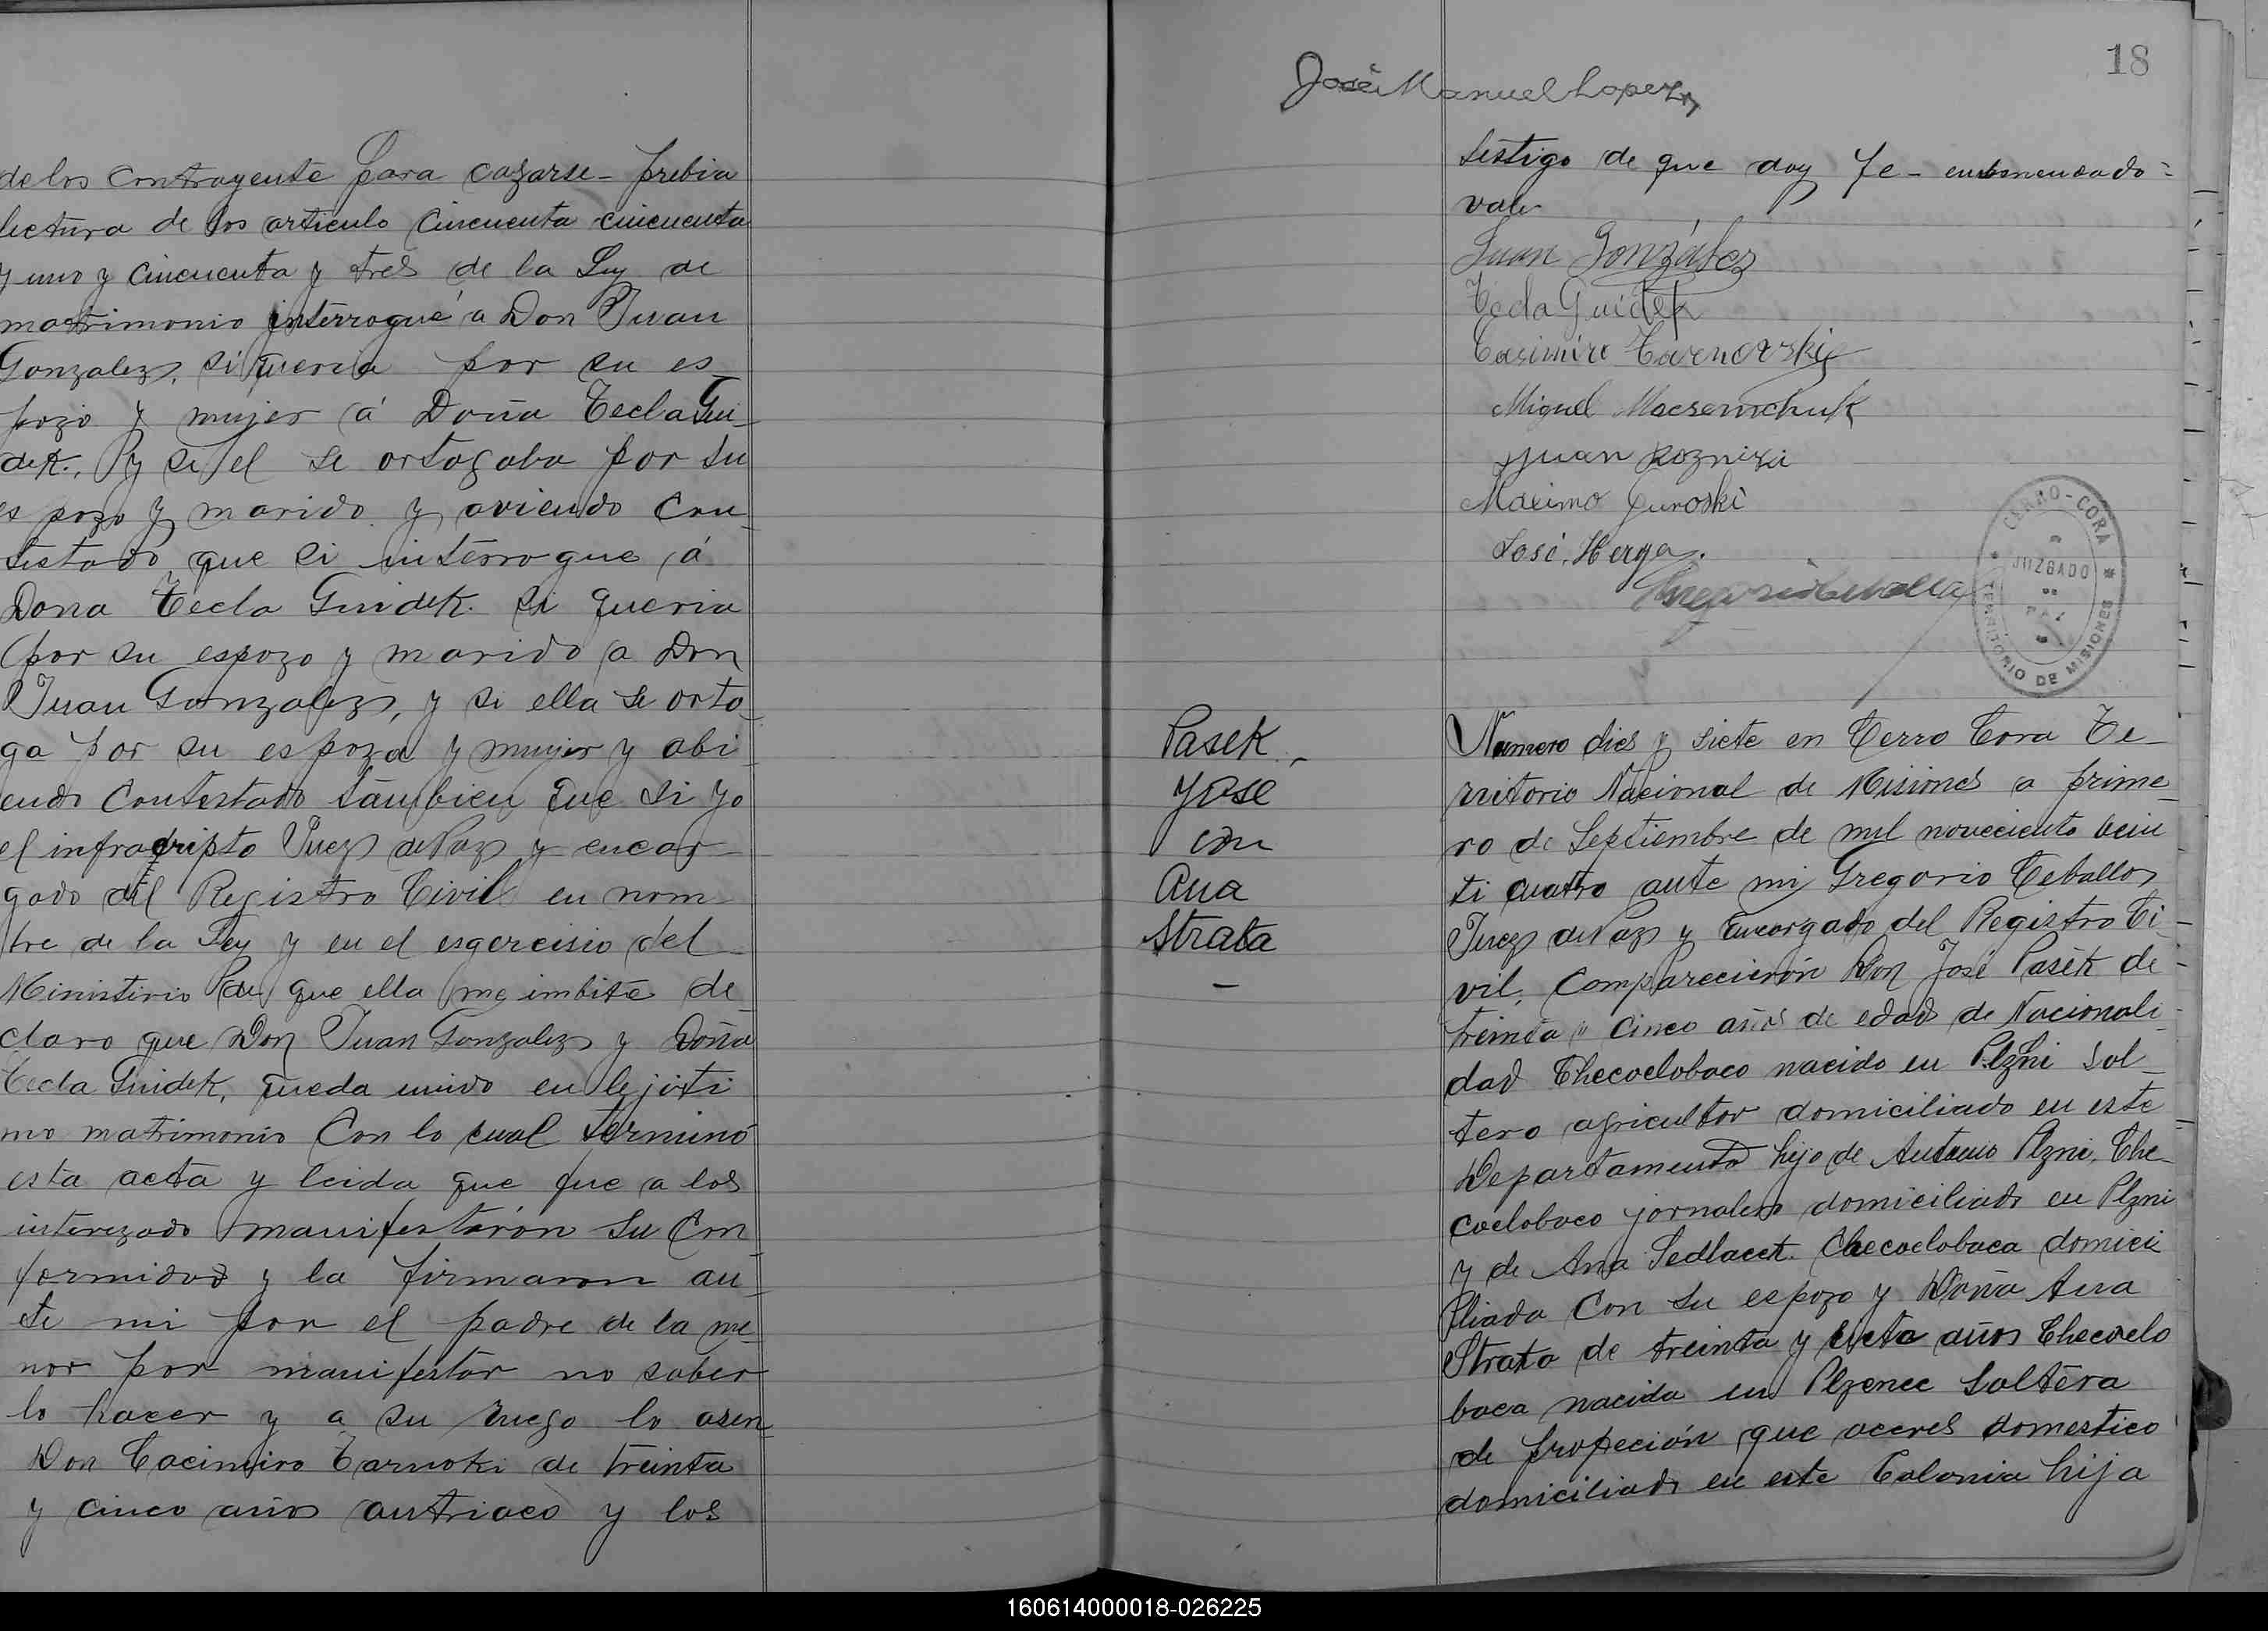 de los contrayente para cazarse - prebia
lectura de los articulo cincuenta cincuenta
y uno y cincuenta y tres de la Ley de
matrimonio interrogué a Don Juan
Gonzalez, si queria por su es-
pozo y mujer á Doña Tecla Gui-
dek. y si el se ortogaba por su
es pozo y marido y aviendo con-
testado que si interrogue á
Dona Tecla Guidek. si queria
por su espozo y marido a Don
Juan Gonzalez, y si ella se orto-
ga por su espoza y mujer y abi-
endo contestado tambien que si yo
el infrascripto Juez de Paz y encar-
gado del Registro Civil en nom-
bre de la Ley y en el esgercisio del
Ministirio de que ella me imbite de-
claro que Don Juan Gonzalez y Doña
Tecla Guidek, queda unido en lejiti
mo matrimonio Con lo cual terminó
esta acta y leida que fue a los
interezado manifestarón su Con-
formidad y la firmaron an-
te mi por el padre de la me-
nor por manifestar no saber
lo hacer y a su ruego lo asen
Don Cacimiro Tarnoki de treinta
y cinco años austriaco y los
18
José Manuel Lopez
testigo de que doy fe - enmendado =
vale
Juan González
Tecla Guidek
Casimiro
Miguel
Juan
Maximo Guroski
José Herga.
CERRO-CORA
JUZGADO
DE
PAZ
TERRITORIO DE MISIONES
Pasek
José
con
Ana
Strata
-
Numero dies y siete en Cerro Cora Te-
rritorio Nacional de Misiones a prime-
ro de Septiembre de mil novecientos vein
ti cuatro ante mi Gregorio Ceballos
Juez de Paz y Encargado del Registro Ci-
vil, Comparecierón Don José Pasek de
treinta y cinco años de edad de Nacionali-
dad Checoelobaco nacido en Plzni sol-
tero agricultor domiciliado en este
Departamento hijo de Antonio Plzni, Che-
coelobaco jornalero domiciliado en Plzni
y de Ana Sedlacet. Checoelobaca domici
liada Con su espozo y Doña Ana
Strata de treinta y siete años Checoelo
baca nacida en Plzence Soltera
de propeción que aceres domestico
domiciliado en este Colonia hija
160614000018-026225